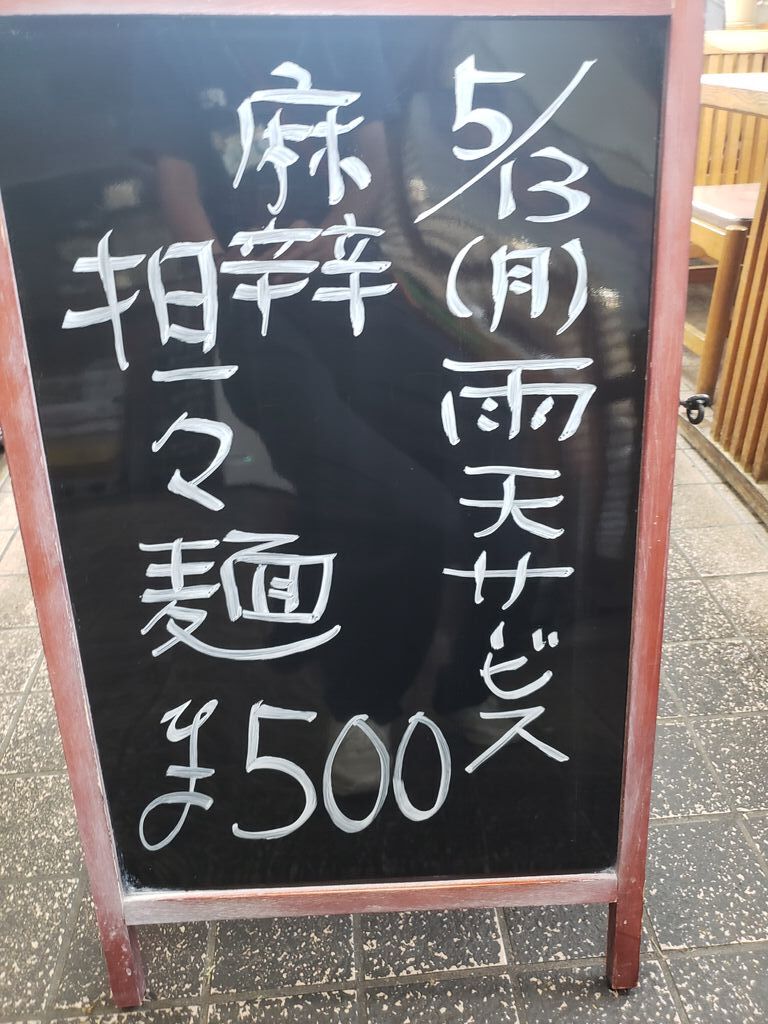 5/13(月)雨天サービス
麻辡
担々麺
¥500